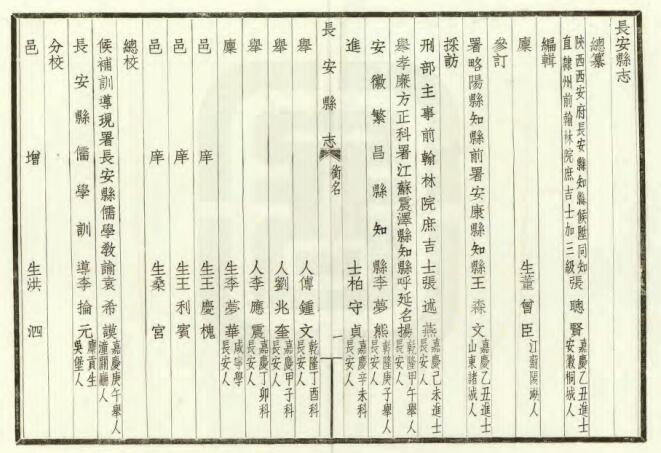 長安縣志
總纂
陝西西安府長安縣知縣候陞同知直隸州前翰林院庶吉士加三級張聰賢嘉慶乙丑進士安徽桐城人
編輯
廩生董曾臣江蘇陽湖人
參訂
署略陽縣知縣前署安康縣知縣王森文嘉慶乙丑進士山東諸城人
採訪
刑部主事前翰林院庶吉士張述燕嘉慶己未進士長安人
舉孝廉方正科署江蘇震澤縣知縣呼延名揚乾隆甲午舉人長安人
安徽繁昌縣知縣李夢熊乾隆庚子舉人長安人
進士柏守貞嘉慶辛未科長安人
長安縣志
銜名
一
舉人傅鍾文乾隆丁酉科長安人
舉人劉兆奎嘉慶甲子科長安人
舉人李應震嘉慶丁卯科長安人
廩生李夢華咸寧學長安人
邑庠生王慶槐
邑庠生王利賓
邑庠生桑宮
總校
候補訓導現署長安縣儒學教諭袁希謨嘉慶庚午舉人潼關廳人
長安縣儒學訓導李掄元廩貢生吳堡人
分校
邑增生洪泗